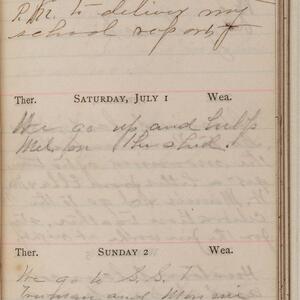 P.M. to deliver my
school report
Ther. SATURDAY, JULY 1 Wea.
We go up and help
on shed.
Ther. SUNDAY 2 Wea.
We go to S.S.
and